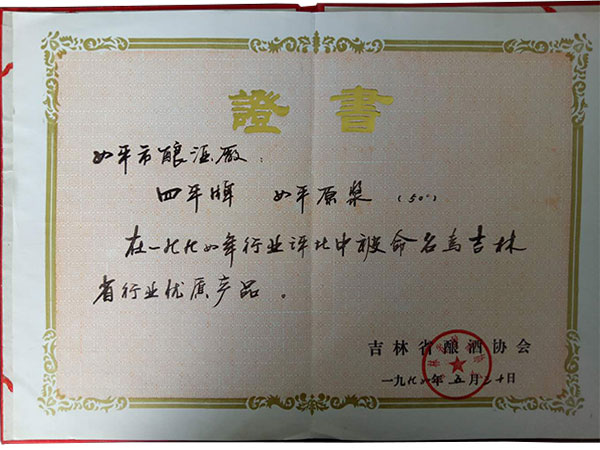 證書
四平市酿酒厂:
四平牌 四平原浆 (50°)
在一九九四年行业评比中被命名为吉林
省行业优质产品。
吉林省酿酒协会
一九九四年五月二十日